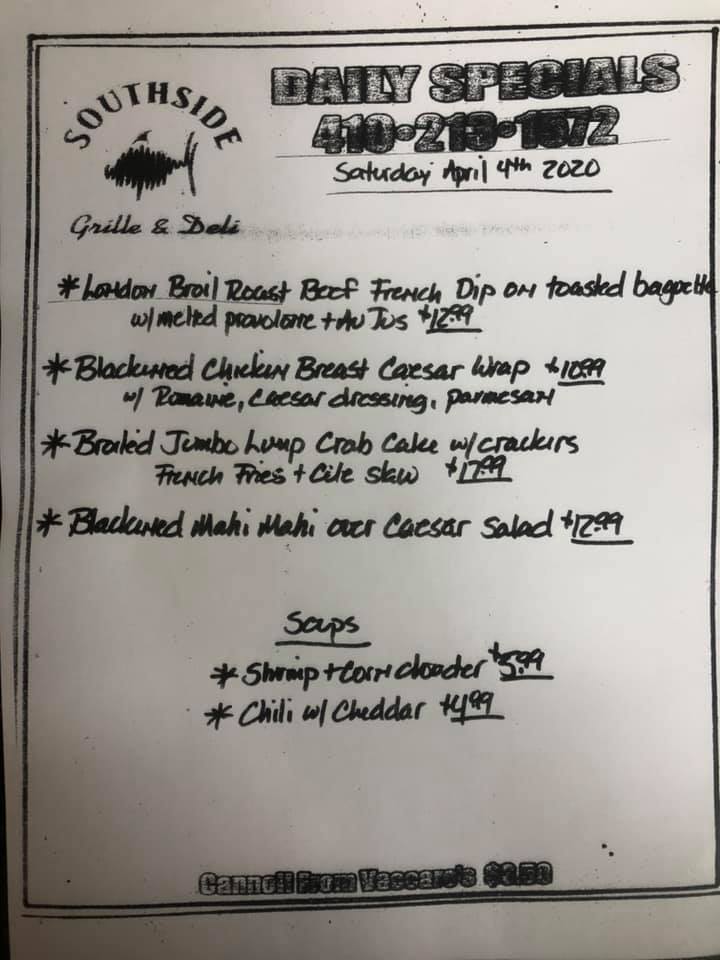 SOUTHSIDE
Grille & Deli
DAILY SPECIALS
410•213•1572
Saturday April 4th 2020
* London Broil Roast Beef French Dip on toasted baguette
w/ melted provolone + Au Jus $12.99
* Blackened Chicken Breast Caesar Wrap $10.99
w/ Romaine, Caesar dressing, parmesan
* Broiled Jumbo Lump Crab Cake w/ crackers
French Fries + Cole Slaw $17.99
* Blackened Mahi Mahi over Caesar Salad $12.99
Soups
* Shrimp + Corn chowder $5.99
* Chili w/ Cheddar $4.99
Cannoli From Vaccaro's $3.50